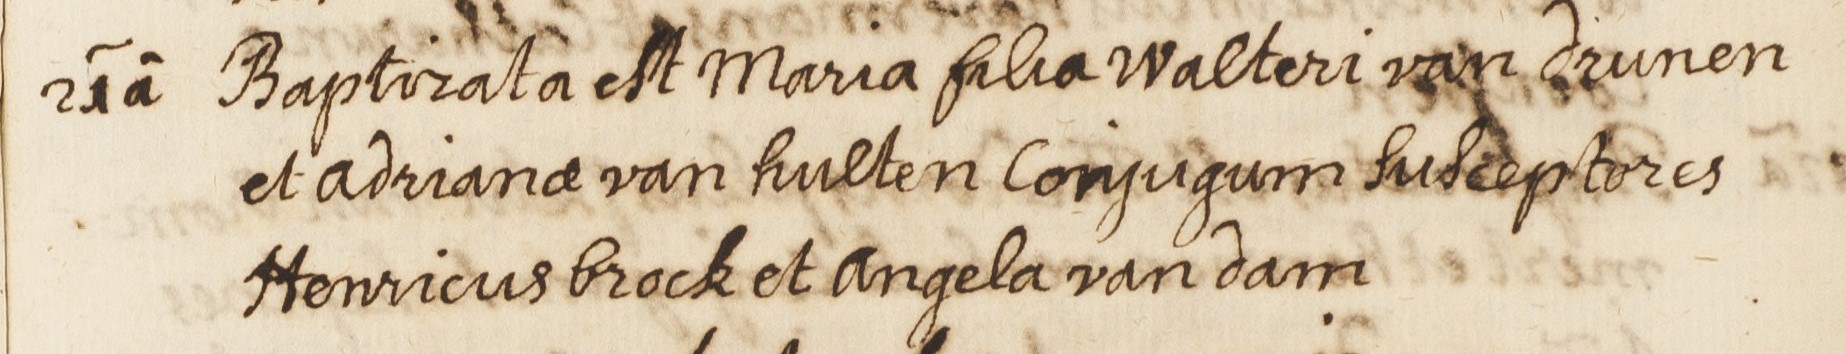 21ā Baptizata est Maria filia Walteri van drunen
et Adrianæ van hulten Conjugum susceptores
Henricus brock et Angela van dam